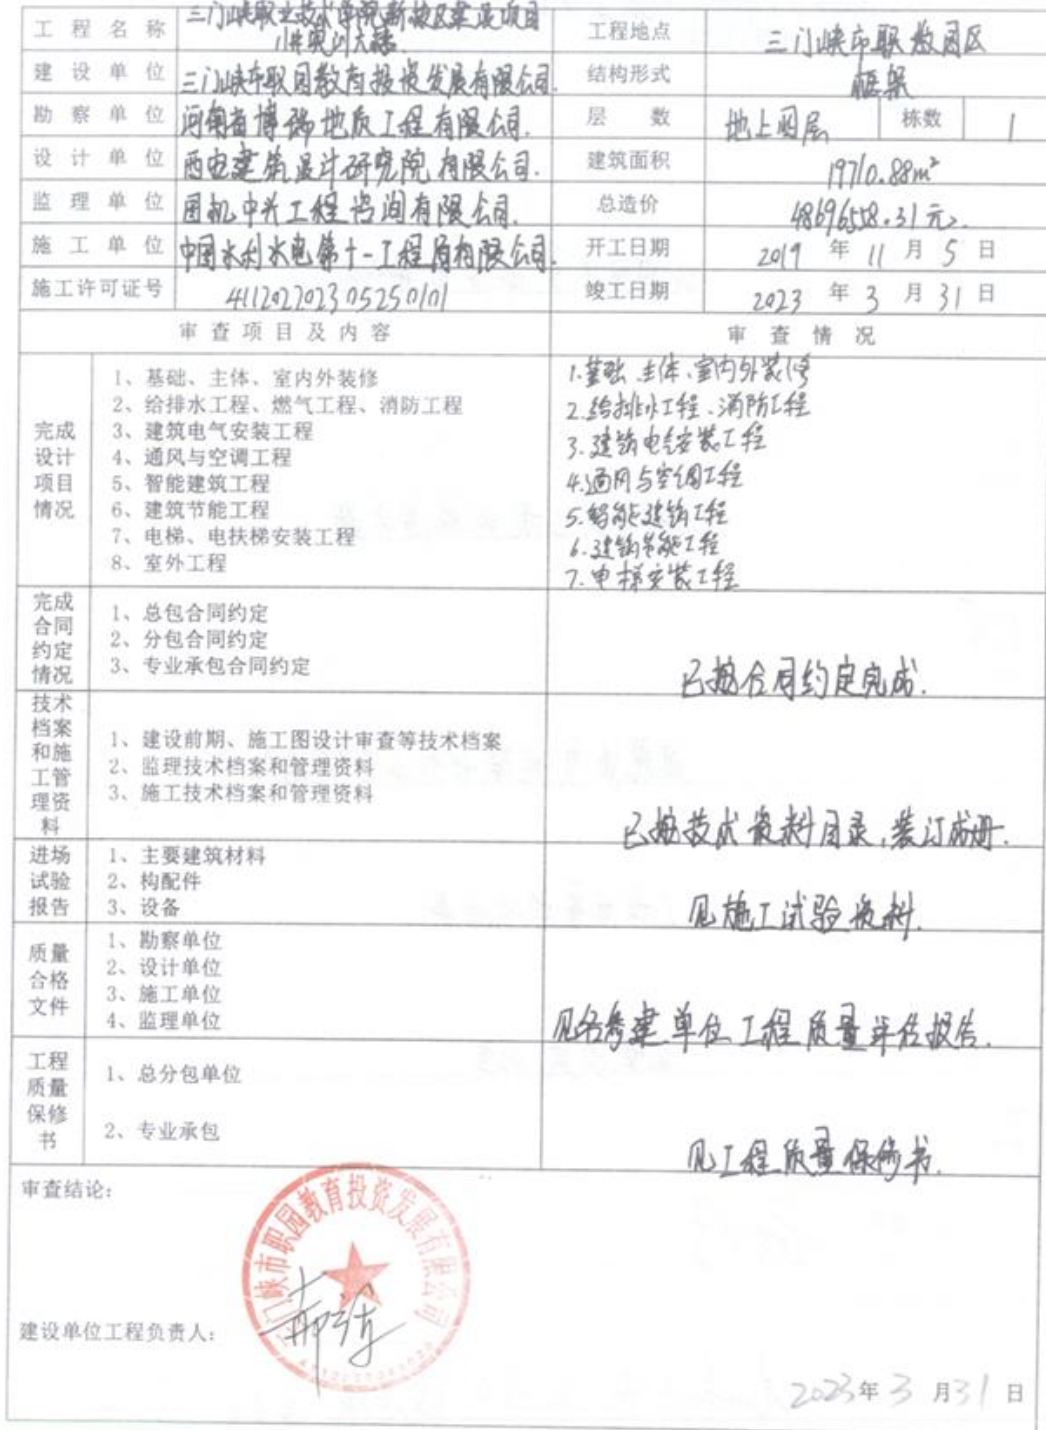 工程名称 三门峡职业技术学院新校区建设项目 工程地点 三门峡市职教园区
1#实训大楼.
建设单位 三门峡市职园教育投资发展有限公司. 结构形式 框架
勘察单位 河南省博瑞地质工程有限公司. 层数 地上四层 栋数 1
设计单位 西安建筑设计研究院有限公司. 建筑面积 19710.88m²
监理单位 国机中兴工程咨询有限公司. 总造价 48696558.31元.
施工单位 中国水利水电第十一工程局有限公司. 开工日期 2019年11月5日
施工许可证号 411202202305250101 竣工日期 2023年3月31日
审查项目及内容 审查情况
完成
设计
项目
情况
1、基础、主体、室内外装修
2、给排水工程、燃气工程、消防工程
3、建筑电气安装工程
4、通风与空调工程
5、智能建筑工程
6、建筑节能工程
7、电梯、电扶梯安装工程
8、室外工程
1.基础、主体、室内外装修
2.给排水工程、消防工程
3.建筑电气安装工程
4.通风与空调工程
5.智能建筑工程
6.建筑节能工程
7.电梯安装工程
完成
合同
约定
情况
1、总包合同约定
2、分包合同约定
3、专业承包合同约定
已按合同约定完成.
技术
档案
和施
工管
理资
料
1、建设前期、施工图设计审查等技术档案
2、监理技术档案和管理资料
3、施工技术档案和管理资料
已按技术资料目录,装订成册.
进场
试验
报告
1、主要建筑材料
2、构配件
3、设备
见施工试验资料.
质量
合格
文件
1、勘察单位
2、设计单位
3、施工单位
4、监理单位
见各参建单位工程质量评估报告.
工程
质量
保修
书
1、总分包单位
2、专业承包
见工程质量保修书.
审查结论：
三门峡市职园教育投资发展有限公司
建设单位工程负责人：
2023年3月31日